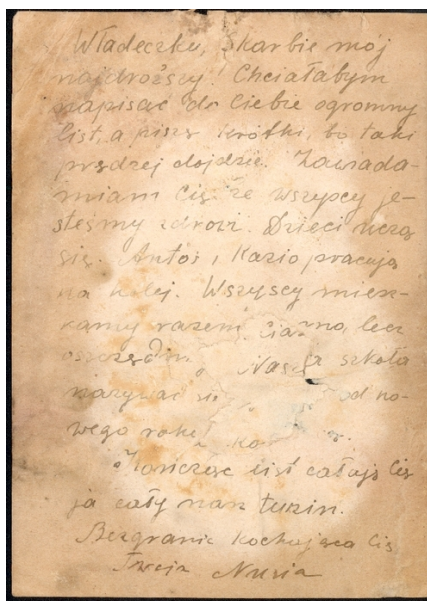 Władeczku, skarbie mój
najdroższy! Chciałabym
napisać do Ciebie ogromny
list, a piszę krótki, bo taki
prędzej dojdzie. Zawiada-
miam Cię że wszyscy je-
steśmy zdrowi. Dzieci uczą
się. Antoś i Kazio pracują
na kolej. Wszyscy miesz-
kamy razem ciasno, lecz
szkoła
od no-
wego roku
Kończąc list całuję Cię
ja cały nasz tuzin.
Bezgranic kochająca Cię
Twoja Nusia